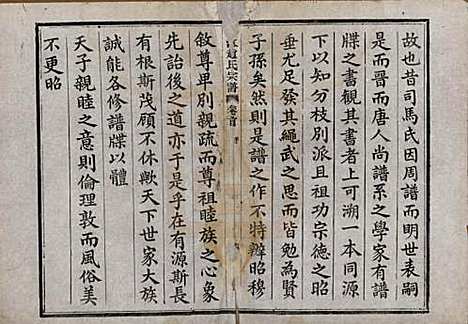 故也昔司馬氏因周譜而明世表嗣
是而晋而唐人尚譜系之學家有譜
牒之書觀其書者上可溯一本同源
下以知分枝別派且祖功宗德之昭
垂尤足發其繩武之思而皆勉為賢
子孫矣然則是譜之作不特辨昭穆
氏宗譜 卷首
敘尊卑別親疏而尊祖睦族之心象
先詒後之道亦于是乎在有源斯長
有根斯茂顧不休歟天下世家大族
誠能各修譜牒以體
天子親睦之意則倫理敦而風俗美
不更昭